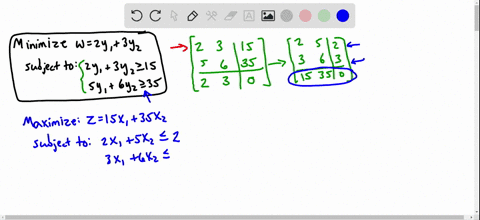 Minimize w=2y₁+3y₂
subject to: { 2y₁+3y₂≥15
5y₁+6y₂≥35
2 3 | 15
5 6 | 35
2 3 | 0
2 5 | 2
3 6 | 3
15 35 | 0
Maximize: Z=15x₁+35x₂
subject to: 2x₁+5x₂≤2
3x₁+6x₂≤